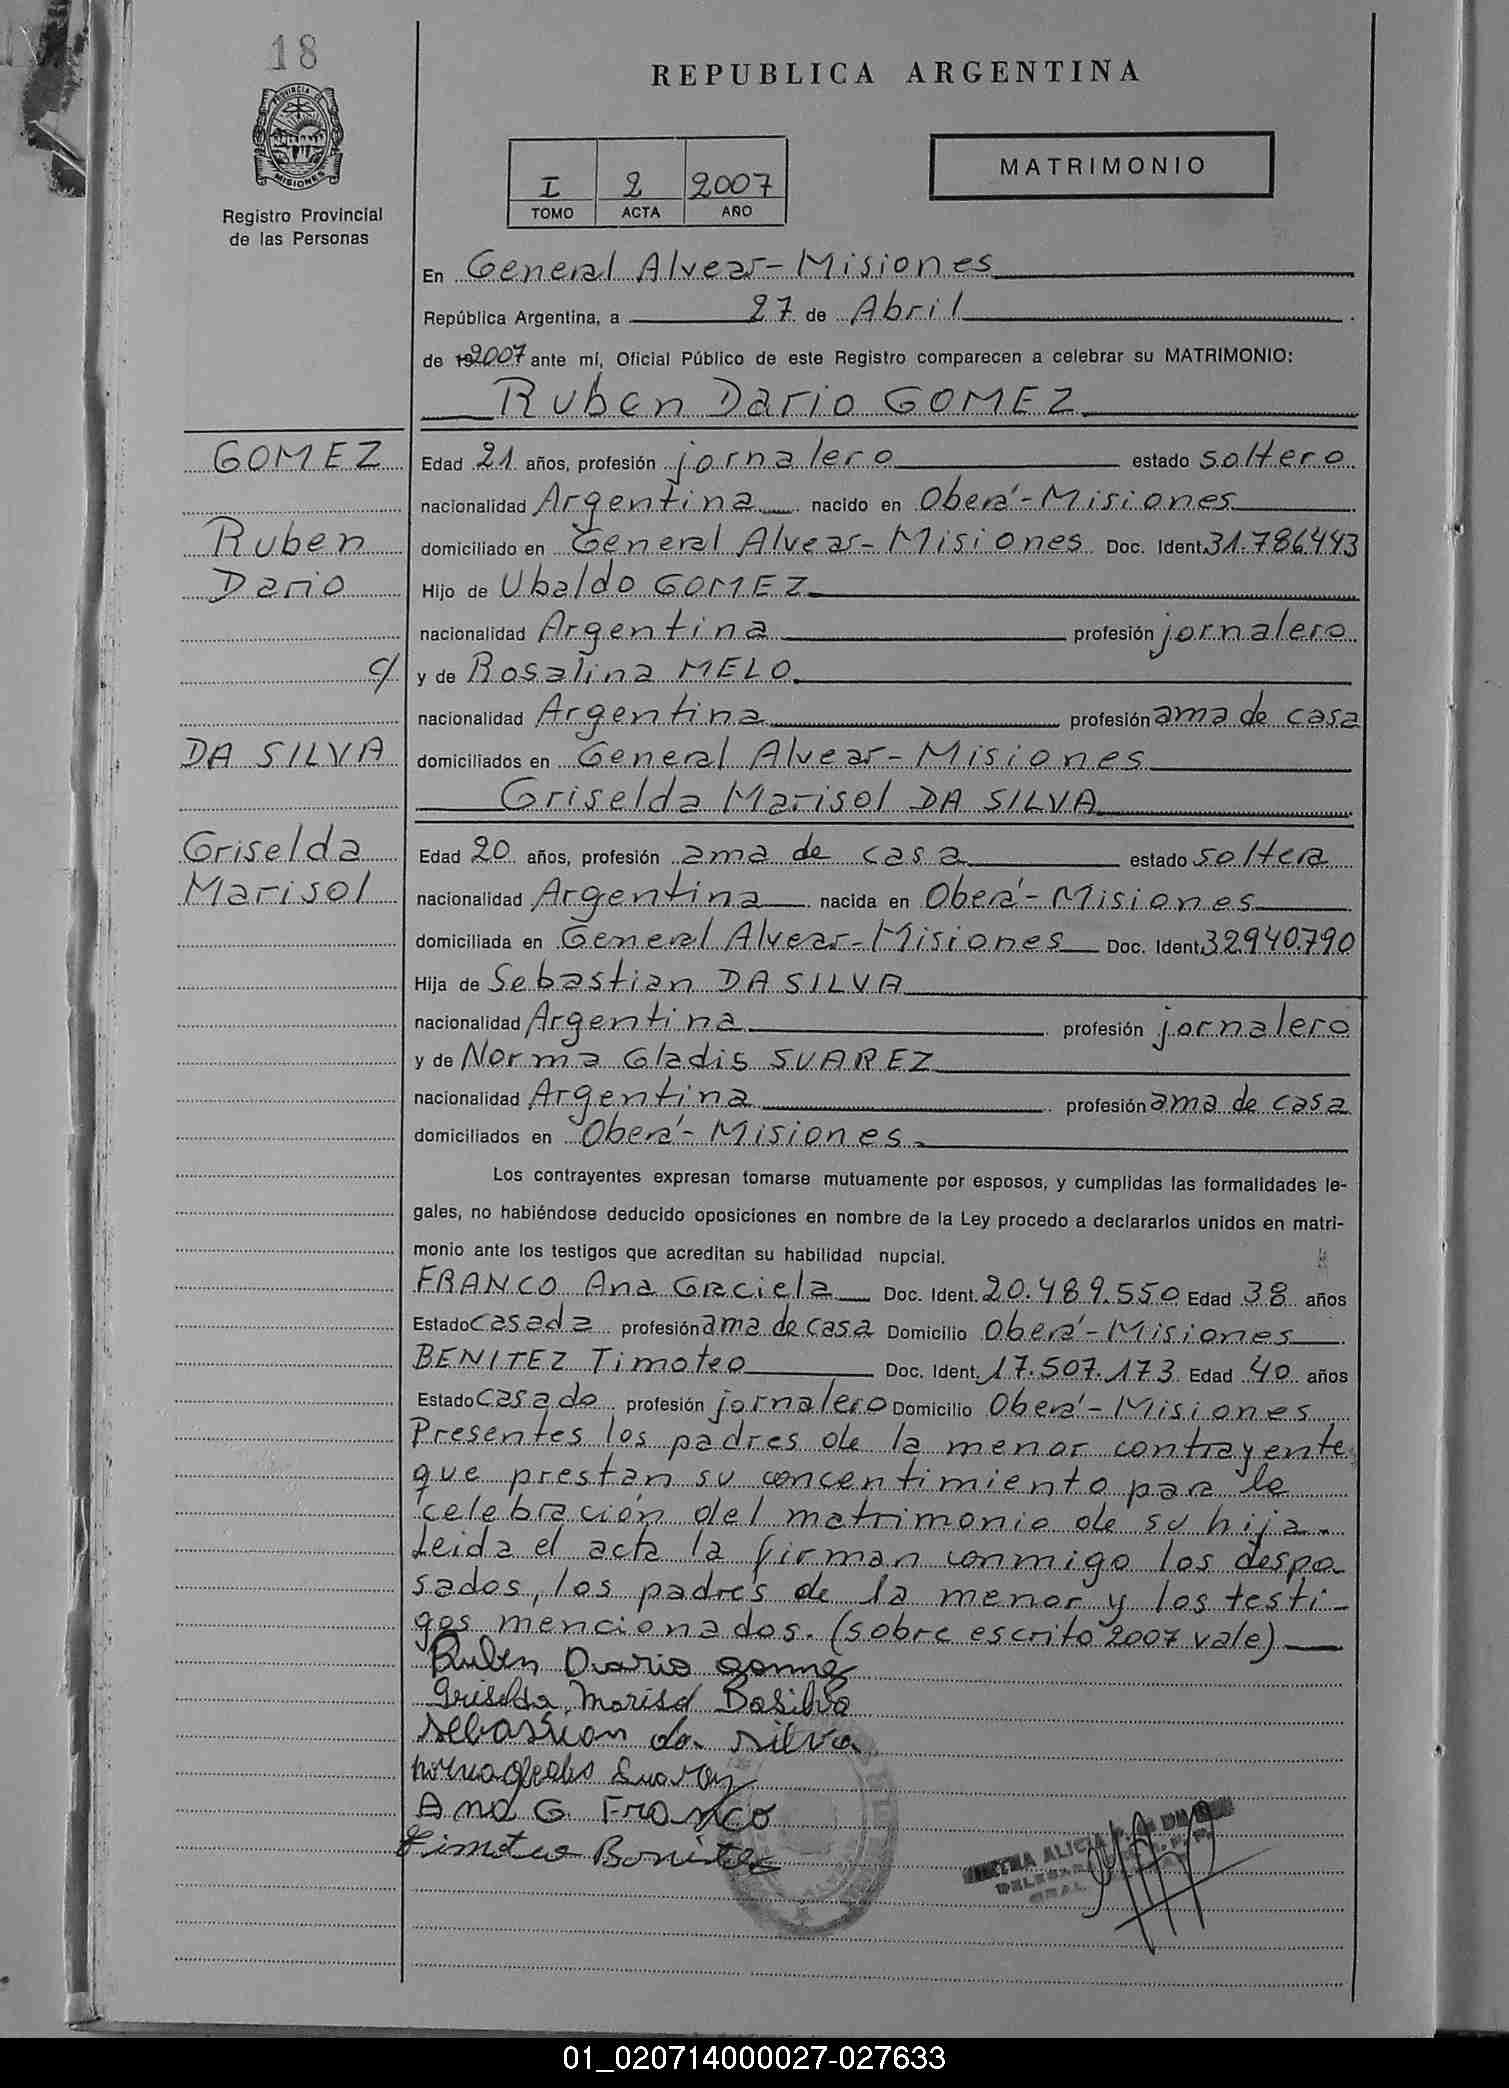 18
REPUBLICA ARGENTINA
PROVINCIA DE
MISIONES
Registro Provincial
de las Personas
I 2 2007
TOMO ACTA AÑO
MATRIMONIO
En General Alvear-Misiones
República Argentina, a 27 de Abril
de 192007 ante mí, Oficial Público de este Registro comparecen a celebrar su MATRIMONIO:
Ruben Dario GOMEZ
GOMEZ
Edad 21 años, profesión jornalero estado soltero
nacionalidad Argentina nacido en Oberá-Misiones
Ruben
domiciliado en General Alvear-Misiones Doc. Ident. 31.786443
Dario
Hijo de Ubaldo GOMEZ
nacionalidad Argentina profesión jornalero
c/
y de Rosalina MELO
nacionalidad Argentina profesión ama de casa
DA SILVA
domiciliados en General Alvear-Misiones
Griselda Marisol DA SILVA
Griselda
Edad 20 años, profesión ama de casa estado soltera
Marisol
nacionalidad Argentina nacida en Oberá-Misiones
domiciliada en General Alvear-Misiones Doc. Ident. 32.940.790
Hija de Sebastian DA SILVA
nacionalidad Argentina profesión jornalero
y de Norma Gladis SUAREZ
nacionalidad Argentina profesión ama de casa
domiciliados en Oberá-Misiones
Los contrayentes expresan tomarse mutuamente por esposos, y cumplidas las formalidades le-
gales, no habiéndose deducido oposiciones en nombre de la Ley procedo a declararlos unidos en matri-
monio ante los testigos que acreditan su habilidad nupcial.
FRANCO Ana Graciela Doc. Ident. 20.489.550 Edad 38 años
Estado casada profesión ama de casa Domicilio Oberá-Misiones
BENITEZ Timoteo Doc. Ident. 17.507.173 Edad 40 años
Estado casado profesión jornalero Domicilio Oberá-Misiones
Presentes los padres de la menor contrayente
que prestan su concentimiento para la
celebración del matrimonio de su hija.
Leida el acta la firman conmigo los despo-
sados, los padres de la menor y los testi-
gos mencionados. (sobre escrito 2007 vale)
Ruben Dario gomez
Griselda Marisol Dasilva
Sebastian da silva
Suarez
Ana G. Franco
Timoteo Benitez
ALICIA
01_020714000027-027633